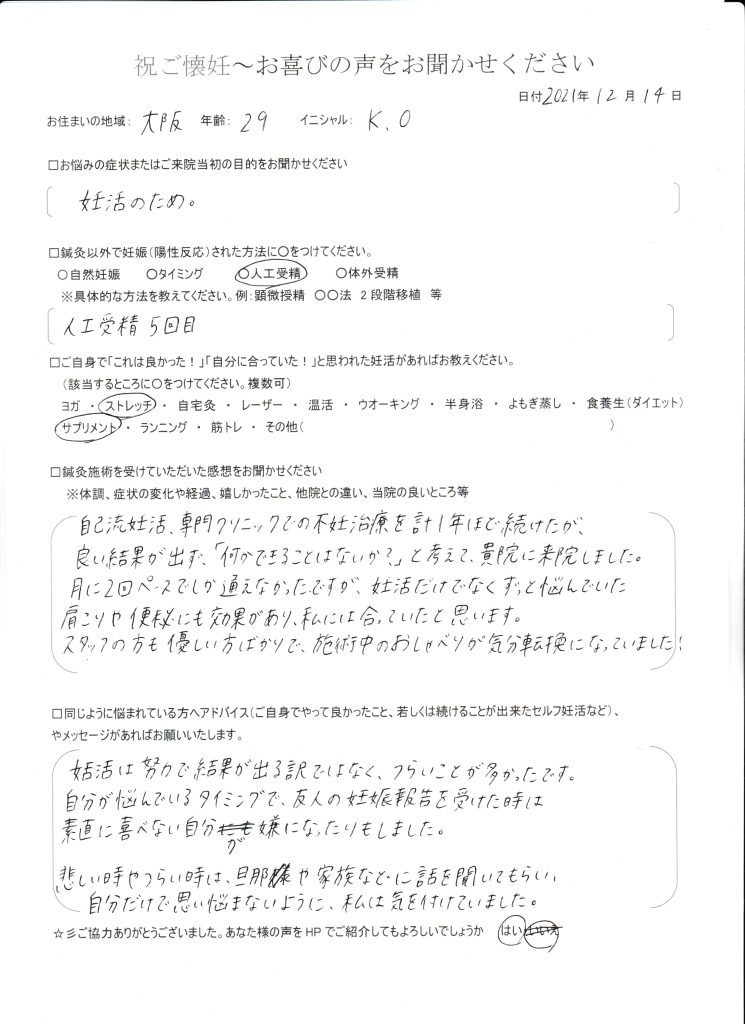 祝ご懐妊～お喜びの声をお聞かせください
日付2021年 12月 14日
お住まいの地域： 大阪 年齢： 29 イニシャル： K.O
□お悩みの症状またはご来院当初の目的をお聞かせください
妊活のため。
□鍼灸以外で妊娠（陽性反応）された方法に○をつけてください。
○自然妊娠 ○タイミング ○人工受精 ○体外受精
※具体的な方法を教えてください。例：顕微授精 ○○法 2段階移植 等
人工受精 5回目
□ご自身で「これは良かった！」「自分に合っていた！」と思われた妊活があればお教えください。
（該当するところに○をつけてください。複数可）
ヨガ ・ ストレッチ ・ 自宅灸 ・ レーザー ・ 温活 ・ ウオーキング ・ 半身浴 ・ よもぎ蒸し ・ 食養生（ダイエット）
サプリメント ・ ランニング ・ 筋トレ ・ その他（ ）
□鍼灸施術を受けていただいた感想をお聞かせください
※体調、症状の変化や経過、嬉しかったこと、他院との違い、当院の良いところ等
自己流妊活、専門クリニックでの不妊治療を計1年ほど続けたが、
良い結果が出ず、「何かできることはないか？」と考えて、貴院に来院しました。
月に2回ペースでしか通えなかったですが、妊活だけでなくずっと悩んでいた
肩こりや便秘にも効果があり、私には合っていたと思います。
スタッフの方も優しい方ばかりで、施術中のおしゃべりが気分転換になっていました！
□同じように悩まれている方へアドバイス（ご自身でやって良かったこと、若しくは続けることが出来たセルフ妊活など）、
やメッセージがあればお願いいたします。
妊活は努力で結果が出る訳ではなく、つらいことが多かったです。
自分が悩んでいるタイミングで、友人の妊娠報告を受けた時は
素直に喜べない自分が嫌になったりもしました。
悲しい時やつらい時は、旦那様や家族などに話を聞いてもらい、
自分だけで思い悩まないように、私は気を付けていました。
☆彡ご協力ありがとうございました。あなた様の声をHPでご紹介してもよろしいでしょうか はい いいえ